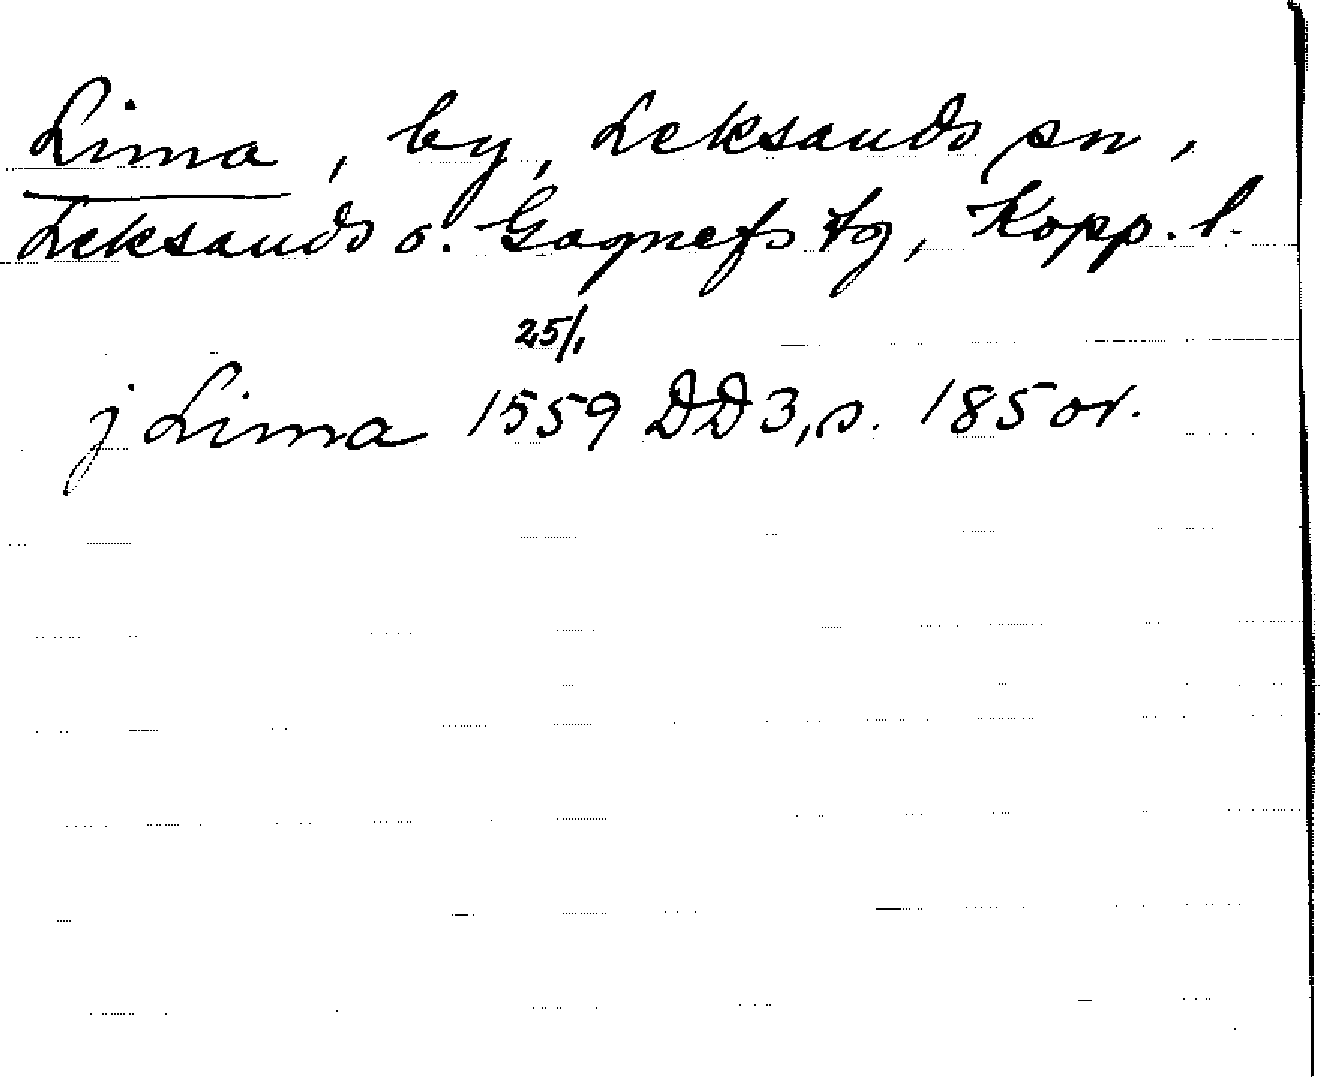 Lima, by, Leksands sn,
Leksands o. Gagnefs tg, Kopp. l.
25/1
j Lima 1559 DD 3, s. 185 or.